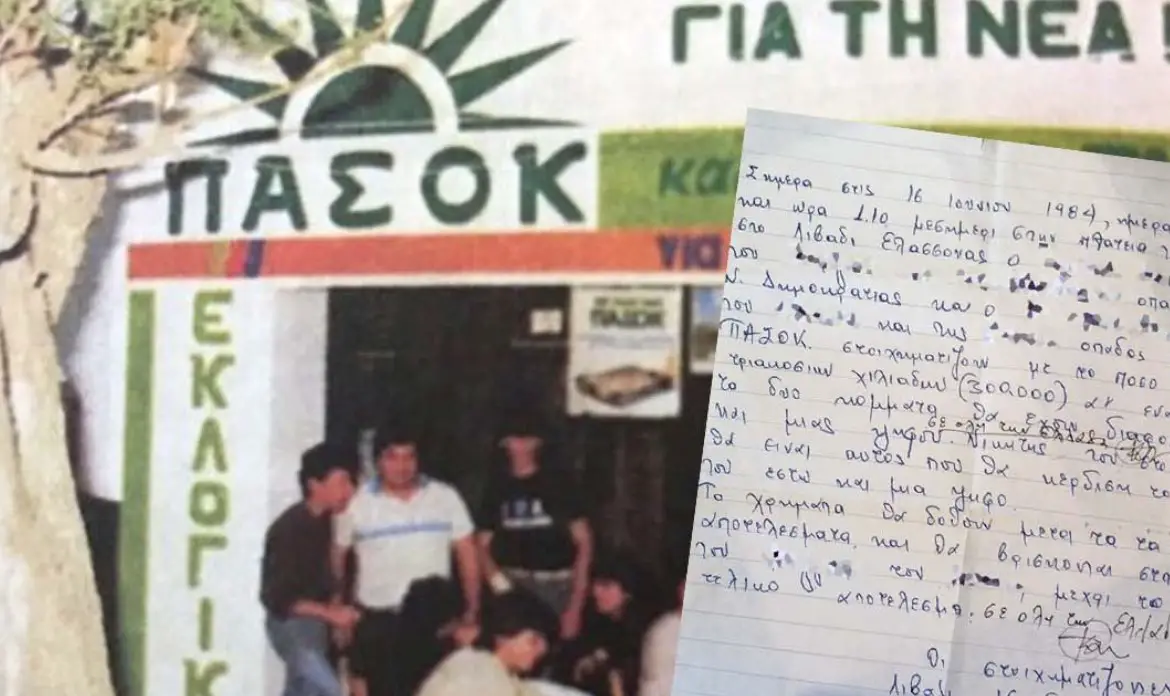 ΓΙΑ ΤΗ ΝΕΑ
ΠΑΣΟΚ
και
για
ΕΚΛΟΓΙΚ
ΠΑΣΟΚ
Σημερα στις 16 Ιουνιου 1984, ημερα
και ωρα 1.10 μεσημμερι στην πλατεια
στο Λιβαδι Ελασσονας ο
του
Ν. Δημοκρατιας και ο
του και της οπαδος
ΠΑΣΟΚ. στοιχηματιζουν με το ποσο
τριακοσιων χιλιαδων (300.000)
το δυο κομματα θα εχουν
σε ολη την Ελλαδα
και μιας ψηφου Νικητης του
θα ειναι αυτος που θα κερδιση το
του εστω και μια ψηφο.
Το χρηματα θα δοθουν μετα τα
αποτελεσματα. και θα βρισκονται στο
του του μεχρι το
τελικο αποτελεσμα. σε ολη την
Οι στοιχηματιζο
Λιβαδι